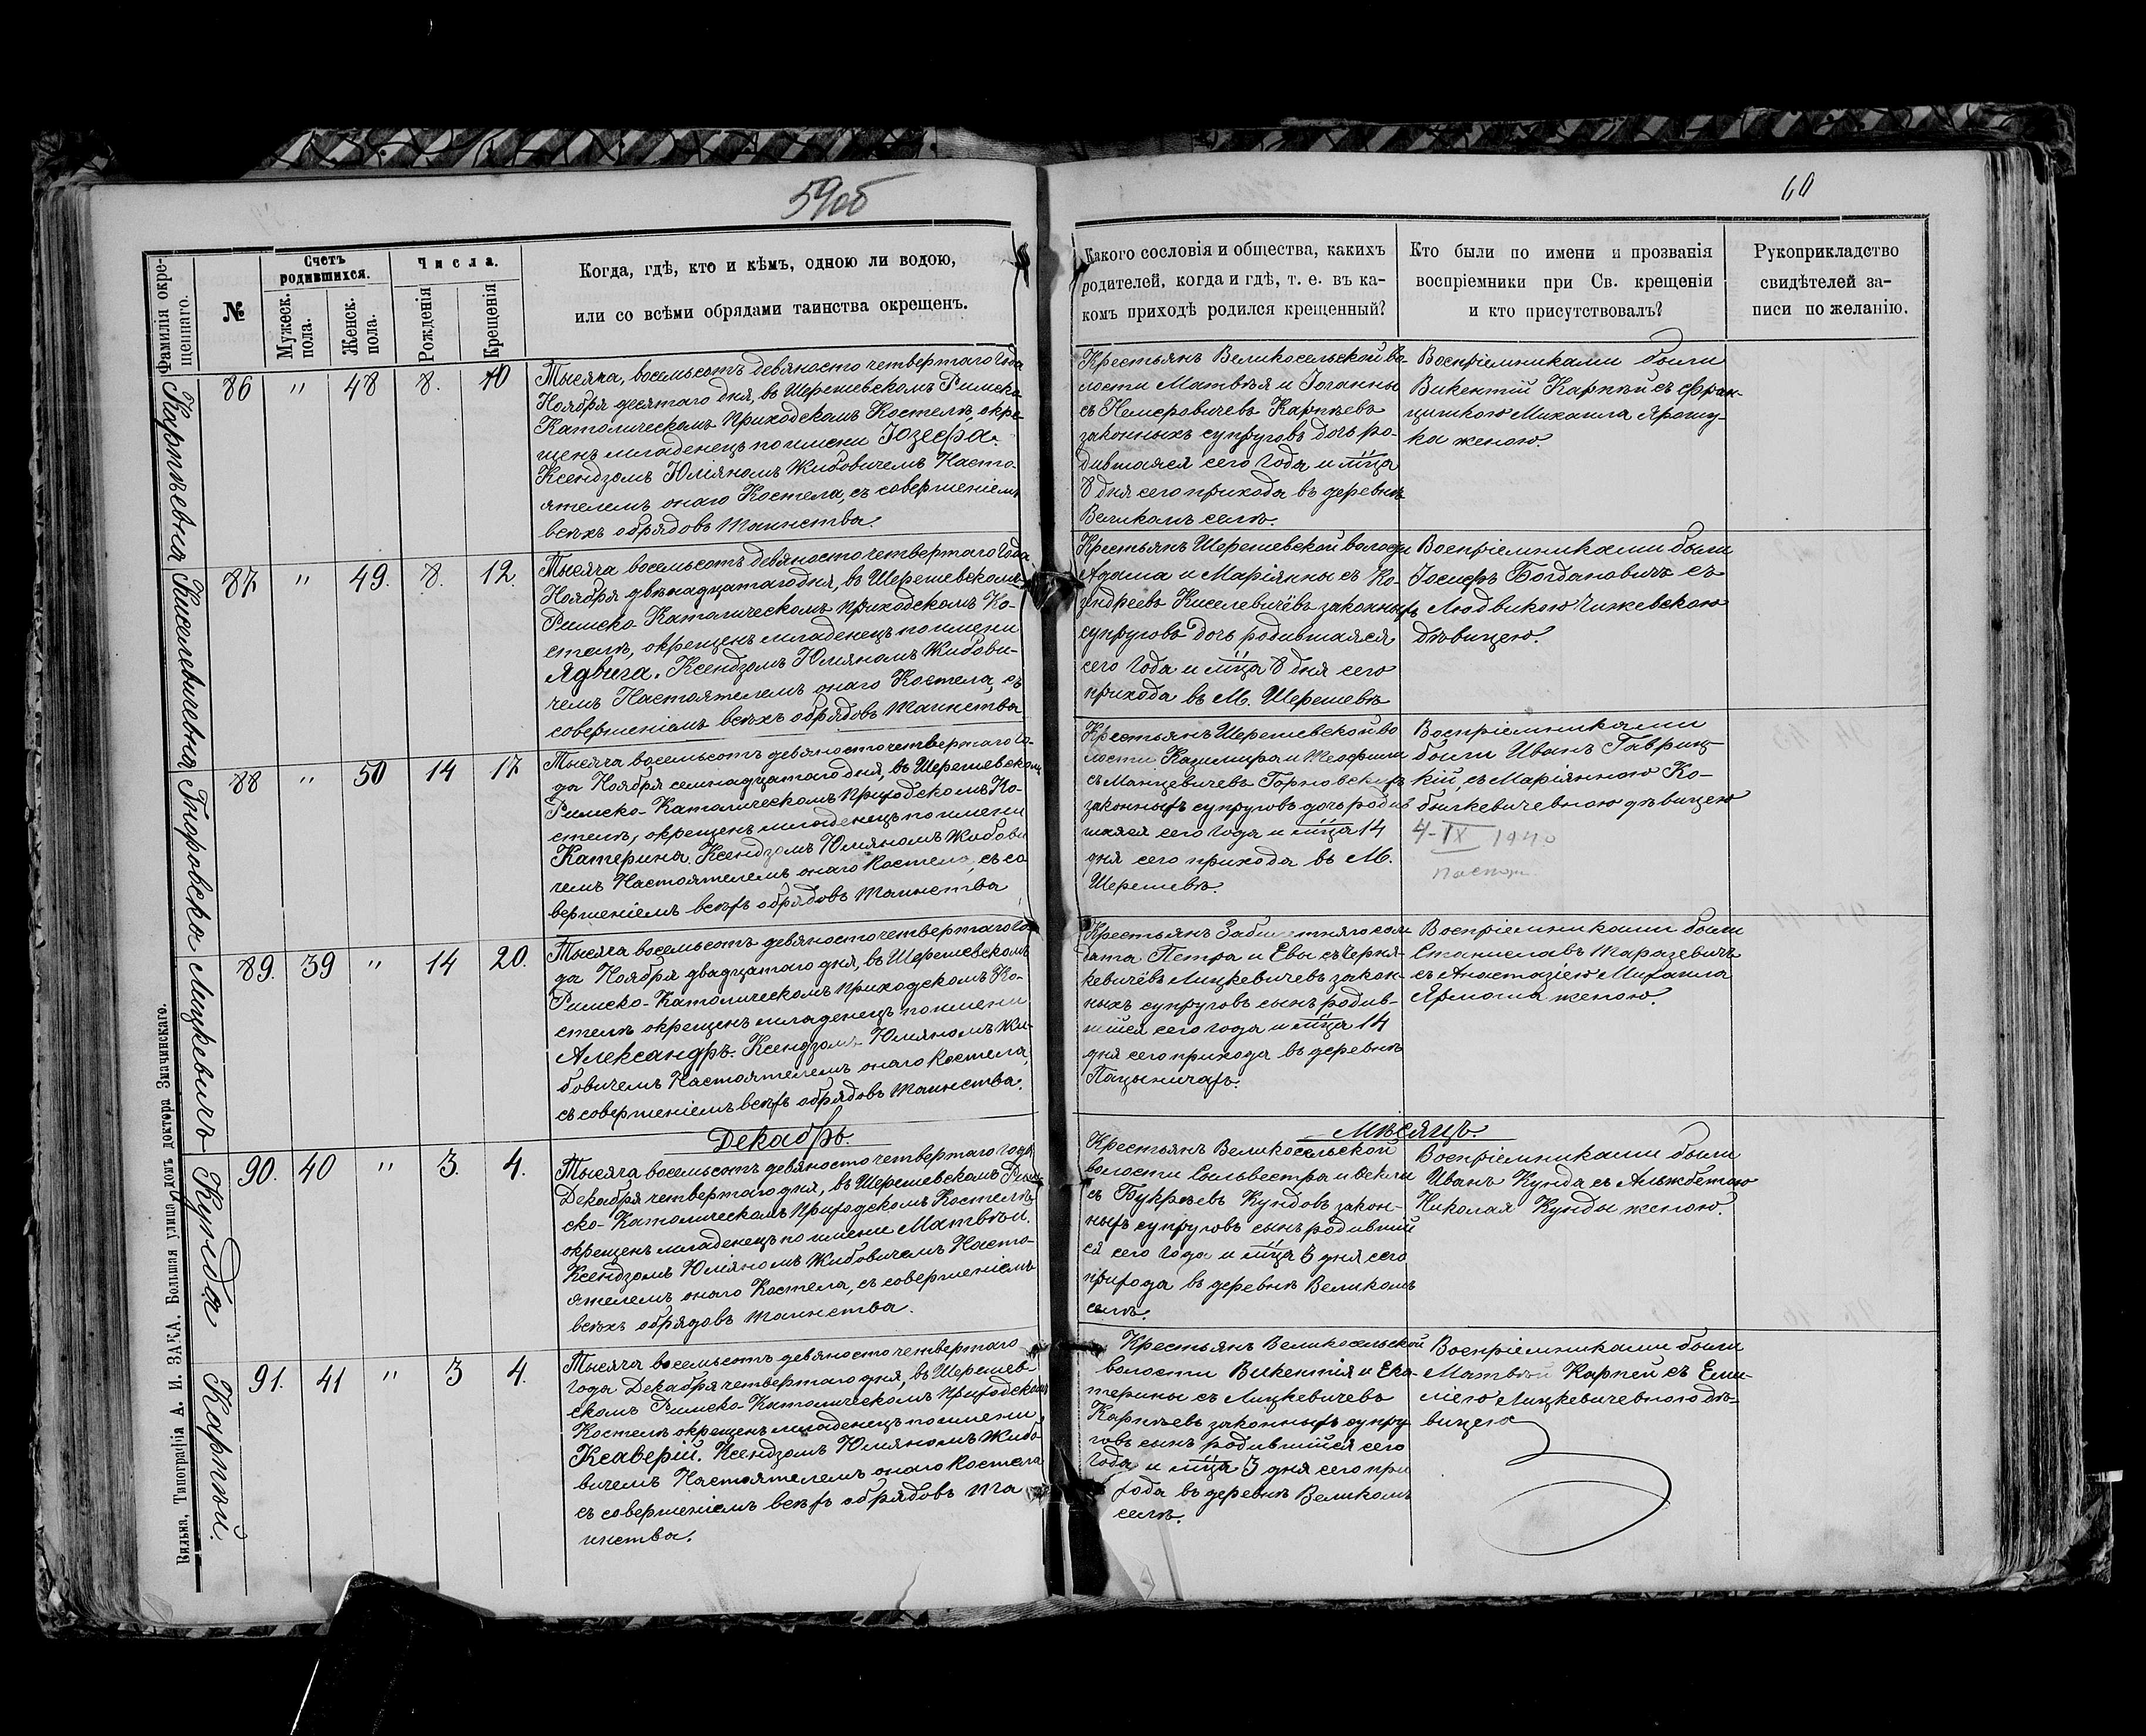 59об
60
Фамилія окре-
щеннаго.
№
Счетъ
родившихся.
Мужеск.
пола.
Женск.
пола.
Числа.
Рожденія
Крещенія
Когда, гдѣ, кто и кѣмъ, одною ли водою,
или со всѣми обрядами таинства окрещенъ.
Какого сословія и общества, какихъ
родителей, когда и гдѣ, т. е. въ ка-
комъ приходѣ родился крещенный?
Кто были по имени и прозванія
воспріемники при Св. крещеніи
и кто присутствовалъ?
Рукоприкладство
свидѣтелей за-
писи по желанію.
Карпѣевна
86 " 48 8. 10
Тысяча, восемьсотъ девяносто четвертаго Года
Ноября десятаго дня, въ Шерешевскомъ Римско-
Католическомъ Приходскомъ Костелѣ, окре-
щенъ младенецъ по имени Іозефа.
Ксендзомъ Юліяномъ Жибовичемъ Насто-
ятелемъ онаго Костела, съ совершеніемъ
всѣхъ обрядовъ Таинства.
Крестьянъ Великосельской во-
лости Матвѣя и Іоганны
съ Немеровичевъ Карпѣевъ
законныхъ супруговъ дочь ро-
дившаяся сего Года и мѣца
8 дня сего прихода въ деревнѣ
Великомъ селѣ.
Воспріемниками были
Викентій Карпѣй съ Фран-
цишкою Михаила Ярошу-
ка женою.
Киселевичевна
87 " 49. 8. 12.
Тысяча восемьсотъ девяносто четвертаго Года
Ноября двѣнадцатаго дня, въ Шерешевскомъ
Римско Католическомъ Приходскомъ Ко-
стелѣ, окрещенъ младенецъ по имени
Ядвига. Ксендзомъ Юліяномъ Жибови-
чемъ Настоятелемъ онаго Костела, съ
совершеніемъ всѣхъ обрядовъ Таинства
Крестьянъ Шерешевской волости
Адама и Маріянны съ Ко-
зндреевъ Киселевичёвъ законныхъ
супруговъ дочь родившаяся
сего Года и мѣца 8 дня сего
прихода въ М. Шерешевѣ
Воспріемниками были
Іосифъ Богдановичъ съ
Людвикою Чижевскою
дѣвицею.
88 " 50 14 17
Тысяча восемьсотъ девяносто четвертаго Го-
да Ноября семнадцатаго дня, въ Шерешевскомъ
Римско-Католическомъ Приходскомъ Ко-
стелѣ, окрещенъ младенецъ по имени
Катерина Ксендзомъ Юліяномъ Жибови
чемъ Настоятелемъ онаго Костела, съ со
вершеніемъ всѣхъ обрядовъ Таинства
Крестьянъ Шерешевской во
лости Казимира и Теофили
съ Манцевичевъ
законныхъ супруговъ дочь родив
шаяся сего Года и мѣца 14
дня сего прихода въ М.
Шерешевѣ.
Воспріемниками
были Иванъ Гавриц-
кій, съ Маріянною Ко-
былкевичевною дѣвицею
4-IX 1940
Мицкевичъ
89. 39 " 14 20.
Тысяча восемьсотъ девяносто четвертаго Го
да Ноября двадцатаго дня, въ Шерешевскомъ
Римско-Католическомъ Приходскомъ Ко-
стелѣ окрещенъ младенецъ по имени
Александръ. Ксендзомъ Юліяномъ Жи-
бовичемъ Настоятелемъ онаго Костела,
съ совершеніемъ всѣхъ обрядовъ Таинства.
Крестьянъ
Петра и Евы съ Черня-
кевичёвъ Мицкевичевъ закон-
ныхъ супруговъ сынъ родив-
шійся сего года и мѣца 14
дня сего прихода въ деревнѣ
Пацыничахъ.
Воспріемниками были
Станиславъ Таразевичъ
съ Анастазіею Михаила
Ярмоша женою.
Декабрь. Мѣсяцъ.
Кунда
90. 40 " 3. 4.
Тысяча восемьсотъ девяносто четвертаго года
Декабря четвертаго дня, въ Шерешевскомъ Рим-
ско-Католическомъ Приходскомъ Костелѣ
окрещенъ младенецъ по имени Матвѣй.
Ксендзомъ Юліяномъ Жибовичемъ Насто-
ятелемъ онаго Костела, съ совершеніемъ
всѣхъ обрядовъ Таинства.
Крестьянъ Великосельской
волости Сыльвестра и Фекли
съ Букрѣевъ Кундовъ закон-
ныхъ супруговъ сынъ родивший
ся сего Года и мѣца 3 дня сего
прихода въ деревнѣ Великомъ
селѣ.
Воспріемниками были
Иванъ Кунда съ Альжбетою
Николая Кунды женою.
Карпѣй.
91. 41 " 3 4.
Тысяча восемьсотъ девяносто четвертаго
Года Декабря четвертаго дня, въ Шерешев-
скомъ Римско-Католическомъ Приходскомъ
Костелѣ окрещенъ младенецъ по имени
Ксаверій. Ксендзомъ Юліяномъ Жибо
вичемъ Настоятелемъ онаго Костела
съ совершеніемъ всѣхъ обрядовъ Та
инства.
Крестьянъ Великосельской
волости Викентія и Ека-
терины съ Мицкевичевъ
Карпѣевъ законныхъ супру
говъ сынъ родившійся сего
Года и мѣца 3 дня сего при
хода въ деревнѣ Великомъ
селѣ.
Воспріемниками были
Матвѣй Карпей съ Еми-
ліею Мицкевичевною дѣ-
вицею
Вильна, Типографія А. И. ЗАКА. Большая улица домъ доктора Змачинскаго.